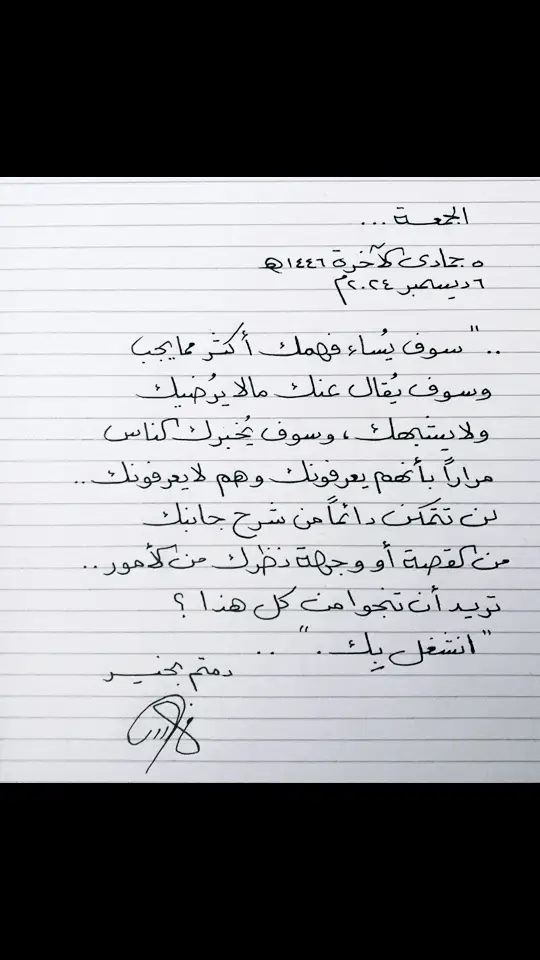 الجمعة ...
٥ جمادى الآخرة ١٤٤٦هـ
٦ ديسمبر ٢٠٢٤م
.. " سوف يُساء فهمك أكثر مما يجب
وسوف يُقال عنك مالا يُرضيك
ولا يشبهك ، وسوف يُخبرك الناس
مراراً بأنهم يعرفونك وهم لا يعرفونك ..
لن تتمكن دائماً من شرح جانبك
من القصة أو وجهة نظرك من الأمور ..
تريد أن تنجوا من كل هذا ؟
" انشغل بِك . " ..
دمتم بخير